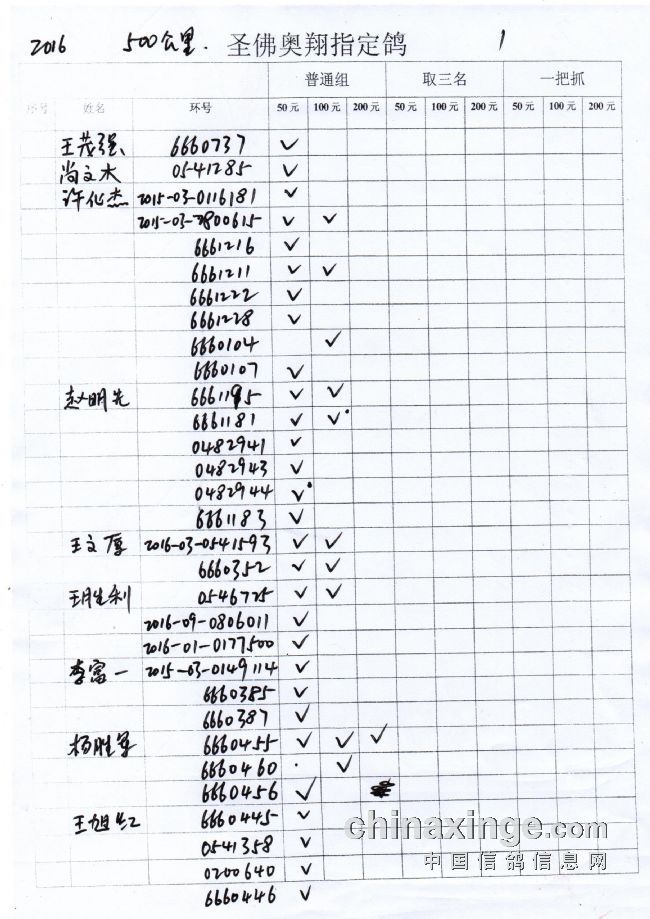 2016 500公里. 圣佛奥翔指定鸽 1
普通组 取三名 一把抓
序号 姓名 环号 50元 100元 200元 50元 100元 200元 50元 100元 200元
王茂强 6660737 ✓
尚文木 0541285 ✓
许仙杰 2015-03-0116181 ✓
2015-03-3800615 ✓ ✓
6661216 ✓
6661211 ✓ ✓
6661222 ✓
6661228 ✓
6660104 ✓
6660107 ✓
赵明先 6661195 ✓ ✓
6661181 ✓ ✓
0482941 ✓
0482943 ✓
0482944 ✓
6661183 ✓
王文厚 2016-03-0541593 ✓ ✓
6660352 ✓ ✓
王胜利 0546775 ✓ ✓
2016-09-0806011 ✓
2016-01-0177500 ✓
李富一 2015-03-0149114 ✓
6660385 ✓
6660387 ✓
杨胜军 6660455 ✓ ✓ ✓
6660460 · ✓
6660456 ✓
王旭红 6660445 ✓
0541358 ✓
0200640 ✓
6660446 ✓
chinaxinge.com
中国信鸽信息网